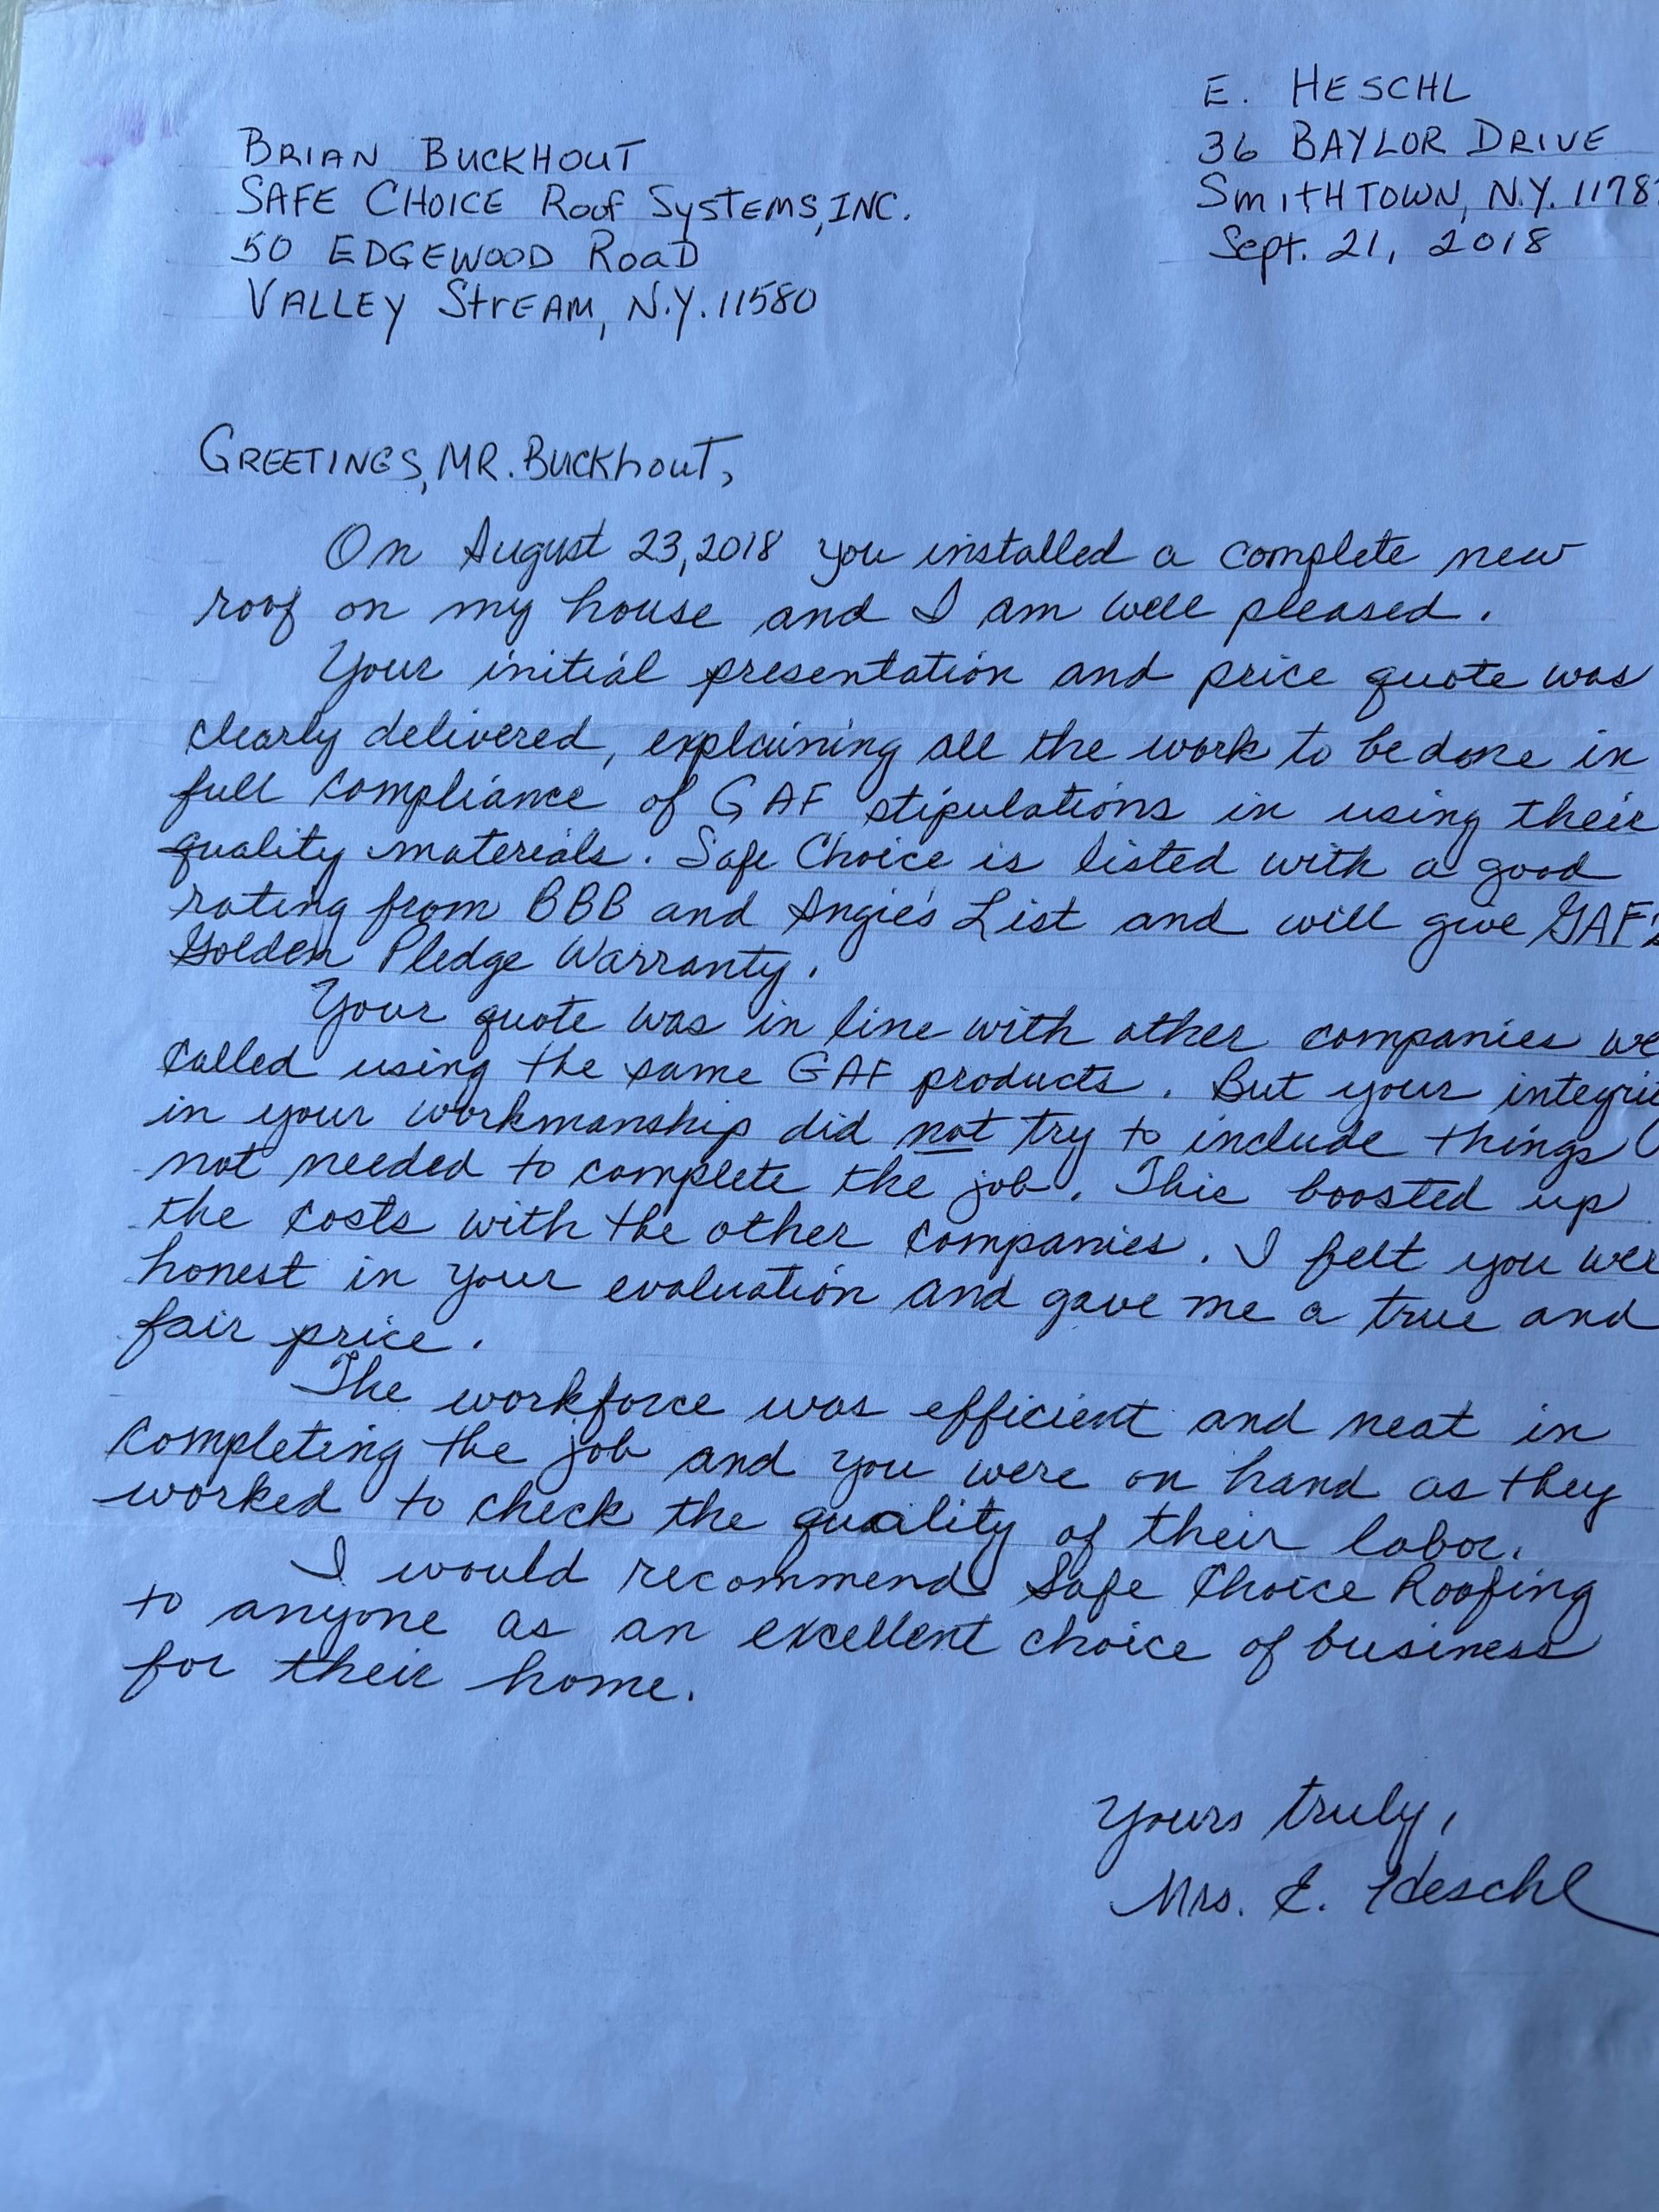 E. HESCHL
36 BAYLOR DRIVE
SMITHTOWN, N.Y. 1178
Sept. 21, 2018
BRIAN BUCKHOUT
SAFE CHOICE Roof SYSTEMS, INC.
50 EDGEWOOD ROAD
VALLEY STREAM, N.Y. 11580
GREETINGS, MR. BUCKhouT,
On August 23, 2018 you installed a complete new
roof on my house and I am well pleased.
Your initial presentation and price quote was
clearly delivered, explaining all the work to be done in
full compliance of GAF stipulations in using their
quality materials. Safe Choice is listed with a good
rating from BBB and Angie's List and will give GAF's
Golden Pledge Warranty.
Your quote was in line with other companies we
called using the same GAF products. But your integri
in your workmanship did not try to include things
not needed to complete the job. This boosted up
the costs with the other companies. I felt you wer
honest in your evaluation and gave me a true and
fair price.
The workforce was efficient and neat in
completing the job and you were on hand as they
worked to check the quality of their labor.
I would recommend Safe Choice Roofing
to anyone as an excellent choice of business
for their home.
Yours truly,
Mrs. E. Heschl